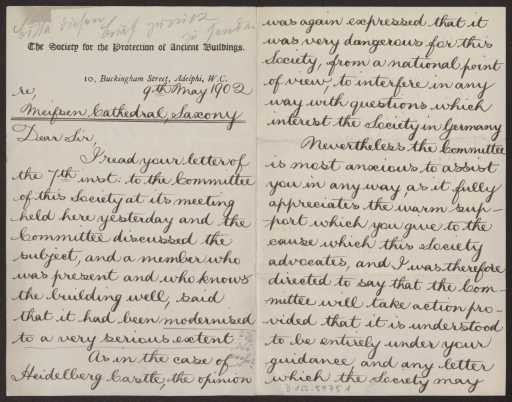 Bitte diesen Brief zurück
zu senden
The Society for the Protection of Ancient Buildings.
10, Buckingham Street, Adelphi, W.C.
re,
9th May 1902
Meifsen Cathedral, Saxony
Dear Sir,
I read your letter of
the 7th inst: to the Committee
of this Society at its meeting
held here yesterday and the
Committee discussed the
subject, and a member who
was present and who knows
the building well, said
that it had been modernised
to a very serious extent
As in the case of
Heidelberg Castle, the opinion
was again expressed that it
was very dangerous for this
Society, from a national point
of view, to interfere in any
way with questions which
interest the Society in Germany
Nevertheless the Committee
is most anxious to assist
you in any way as it fully
appreciates the warm sup-
port which you give to the
cause which this Society
advocates, and I was therefore
directed to say that the Com-
mittee will take action pro-
vided that it is understood
to be entirely under your
guidance, and any letter
which the Society may